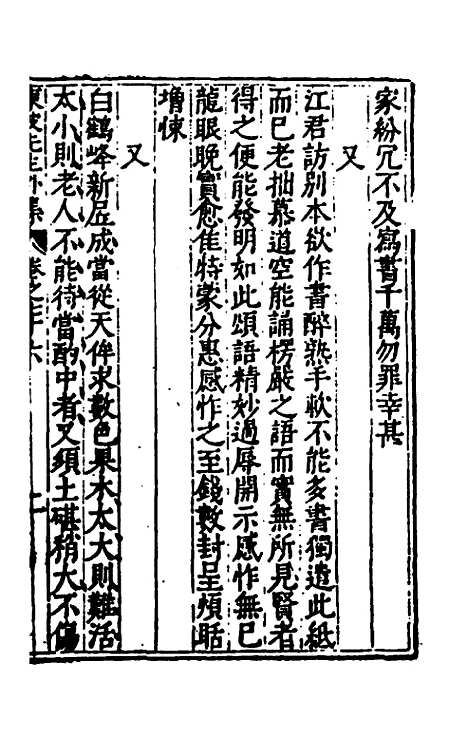 家紛冗不及寫書千萬勿罪幸甚
又
江君訪別本欲作書醉熟手軟不能多書獨遣此紙
而已老拙慕道空能誦楞嚴之語而實無所見賢者
得之便能發明如此頌語精妙過辱開示感怍無已
龍眼晚實愈佳特蒙分惠感怍之至錢數封呈煩聒
增悚
又
白鶴峰新居成當從天侔求數色果木太大則難活
太小則老人不能待當酌中者又須土碪稍大不傷
東坡先生外集 卷之七十六